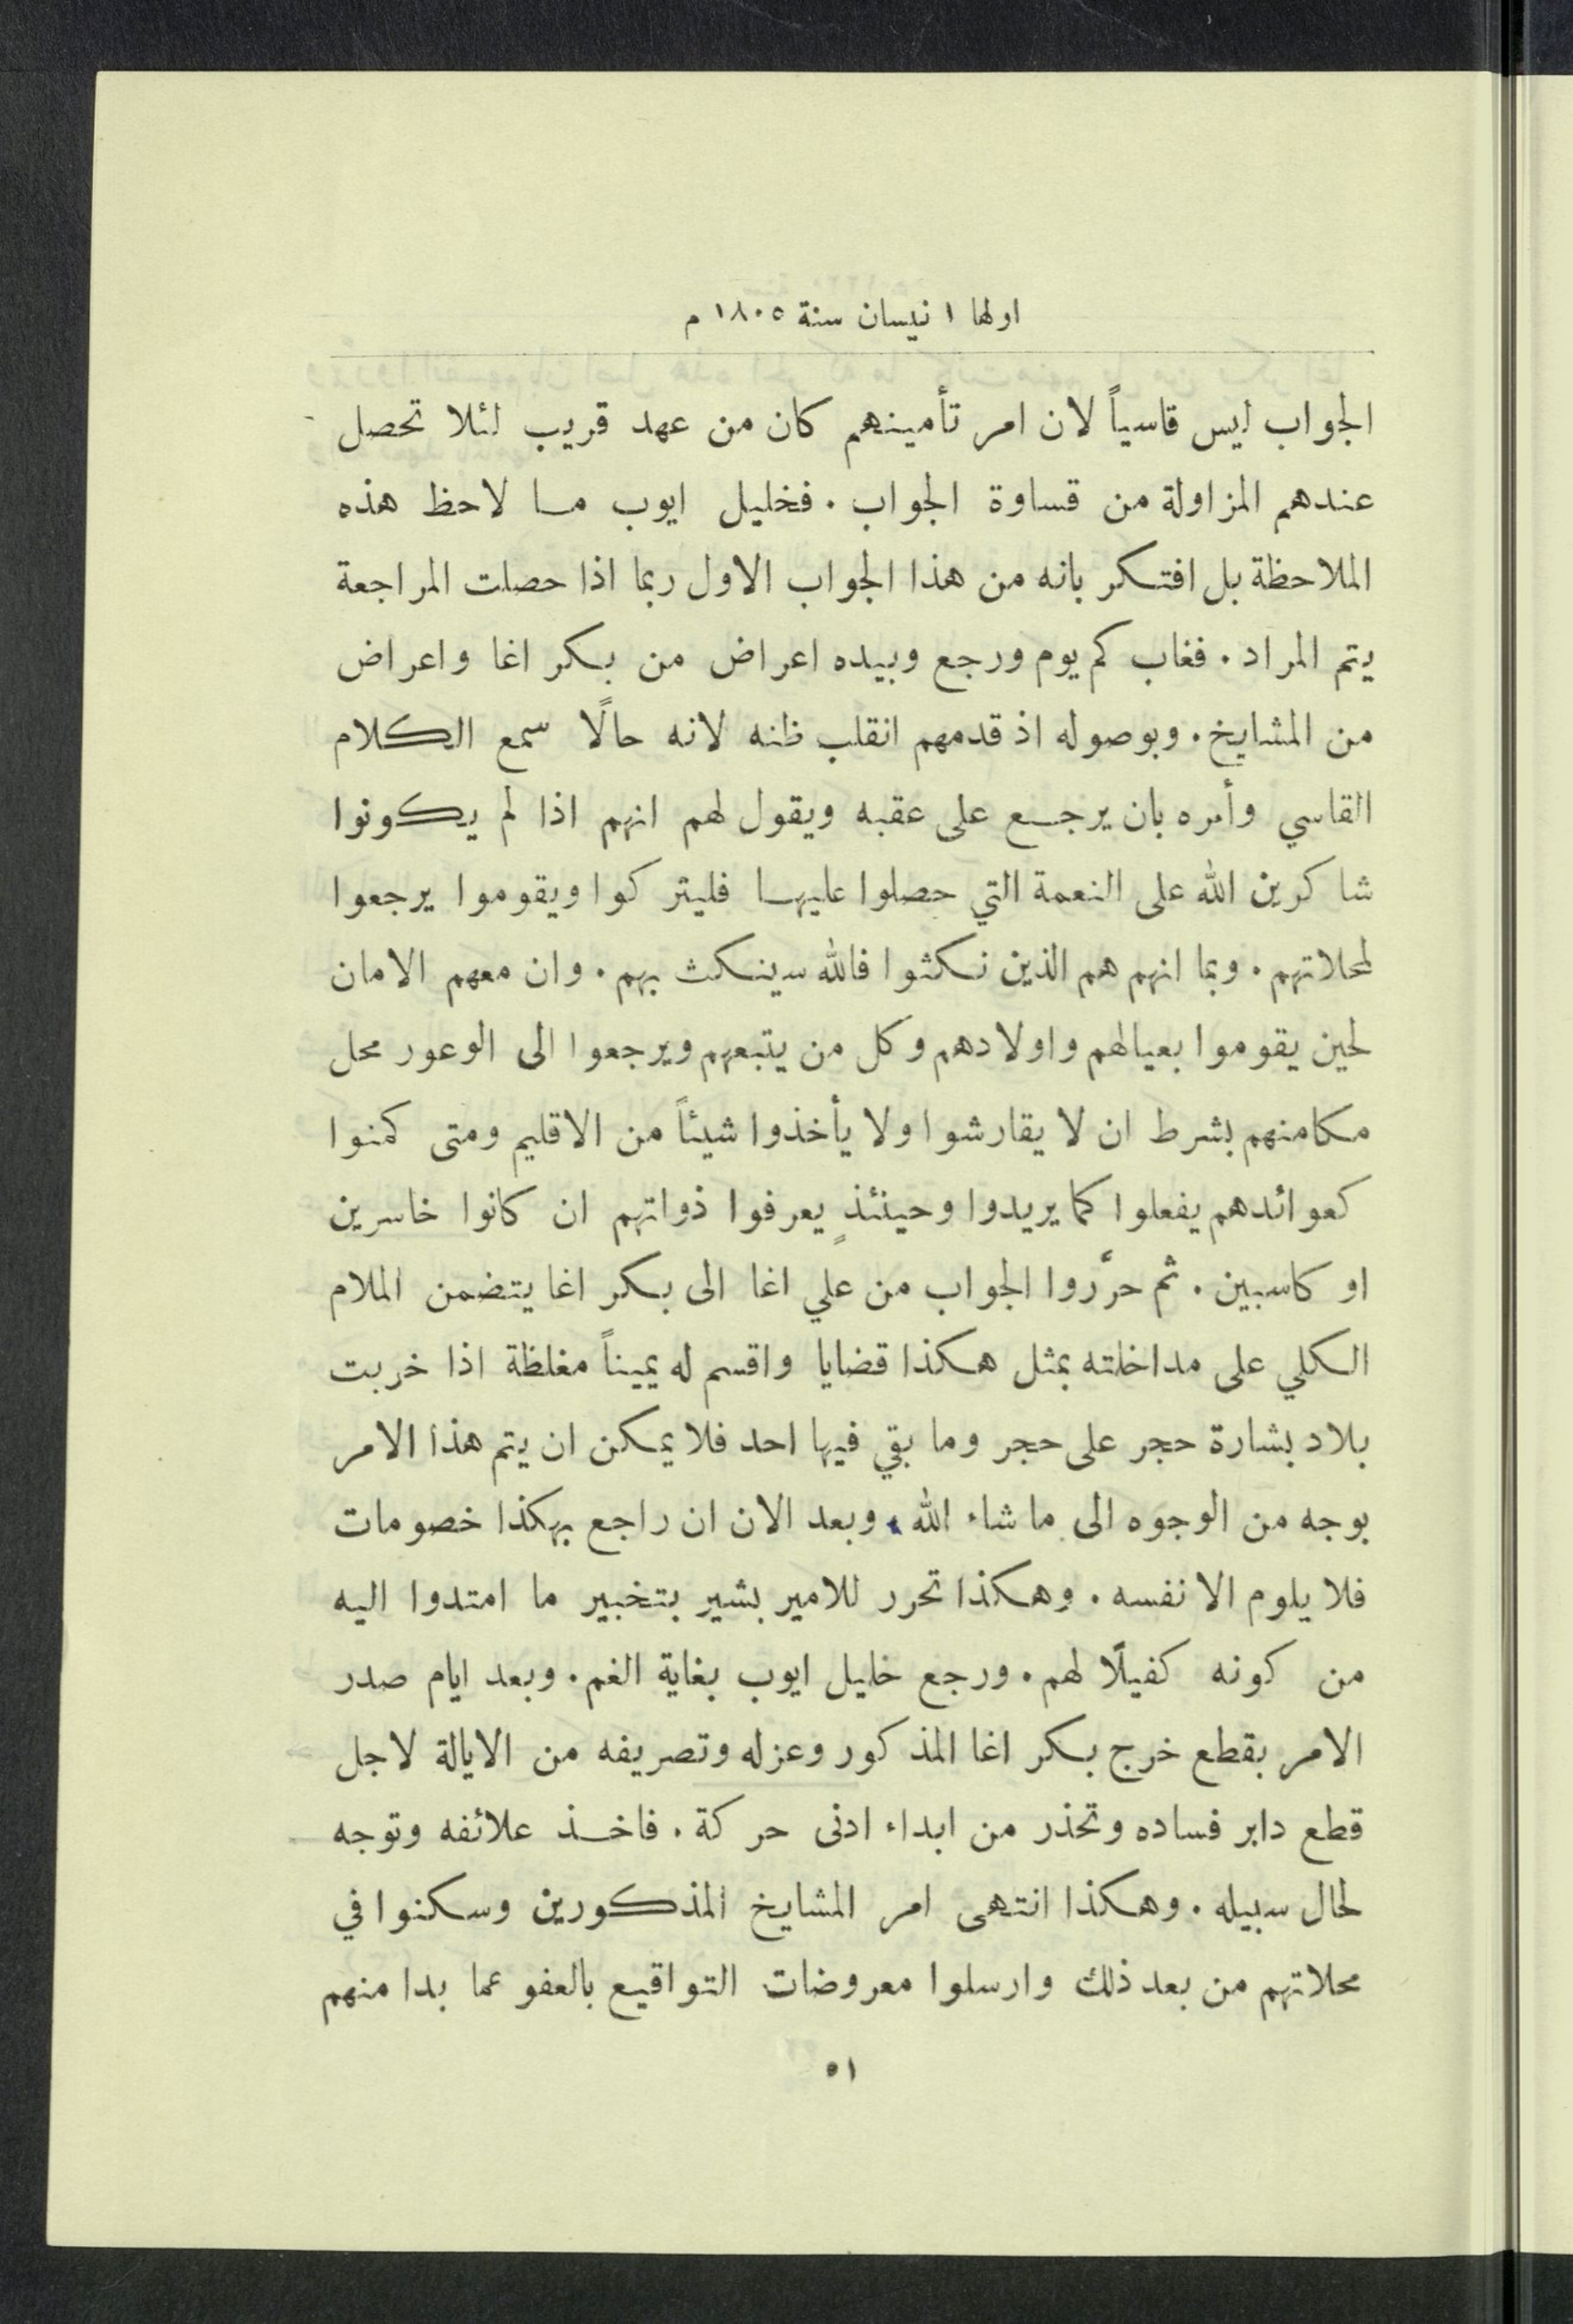 اولها ١ نيسان سنة ١٨٠٥ م
الجواب ليس قاسياً لان امر تأمينهم كان من عهد قريب لئلا تحصل
عندهم المزاولة من قساوة الجواب. فخليل ايوب ما لاحظ هذه
الملاحظة بل افتكر بانه من هذا الجواب الاول ربما اذا حصلت المراجعة
يتم المراد. فغاب كم يوم ورجع وبيده اعراض من بكر اغا واعراض
من المشايخ. وبوصوله اذ قدمهم انقلب ظنه لانه حالًا سمع الكلام
القاسي وأمره بان يرجع على عقبه ويقول لهم انهم اذا لم يكونوا
شاكرين الله على النعمة التي حصلوا عليها فليتركوا ويقوموا يرجعوا
لمحلاتهم. وبما انهم هم الذين نكثوا فالله سينكث بهم. وان معهم الامان
لحين يقوموا بعيالهم واولادهم وكل من يتبعهم ويرجعوا الى الوعور محل
مكامنهم بشرط ان لا يقارشوا ولا يأخذوا شيئاً من الاقليم ومتى كمنوا
كعوائدهم يفعلوا كما يريدوا وحينئذٍ يعرفوا ذواتهم ان كانوا خاسرين
او كاسبين. ثم حرَّروا الجواب من علي اغا الى بكر اغا يتضمن الملام
الكلي على مداخلته بمثل هكذا قضايا واقسم له يميناً مغلظة اذا خربت
بلاد بشارة حجر على حجر وما بقي فيها احد فلا يمكن ان يتم هذا الامر
بوجه من الوجوه الى ما شاء الله، وبعد الان ان راجع بهكذا خصومات
فلا يلوم الا نفسه. وهكذا تحرر للامير بشير بتخبير ما امتدوا اليه
من كونه كفيلًا لهم. ورجع خليل ايوب بغاية الغم. وبعد ايام صدر
الامر بقطع خرج بكر اغا المذكور وعزله وتصريفه من الايالة لاجل
قطع دابر فساده وتحذر من ابداء ادنى حركة. فاخذ علائفه وتوجه
لحال سبيله. وهكذا انتهى امر المشايخ المذكورين وسكنوا في
محلاتهم من بعد ذلك وارسلوا معروضات التواقيع بالعفو عما بدا منهم
٥١